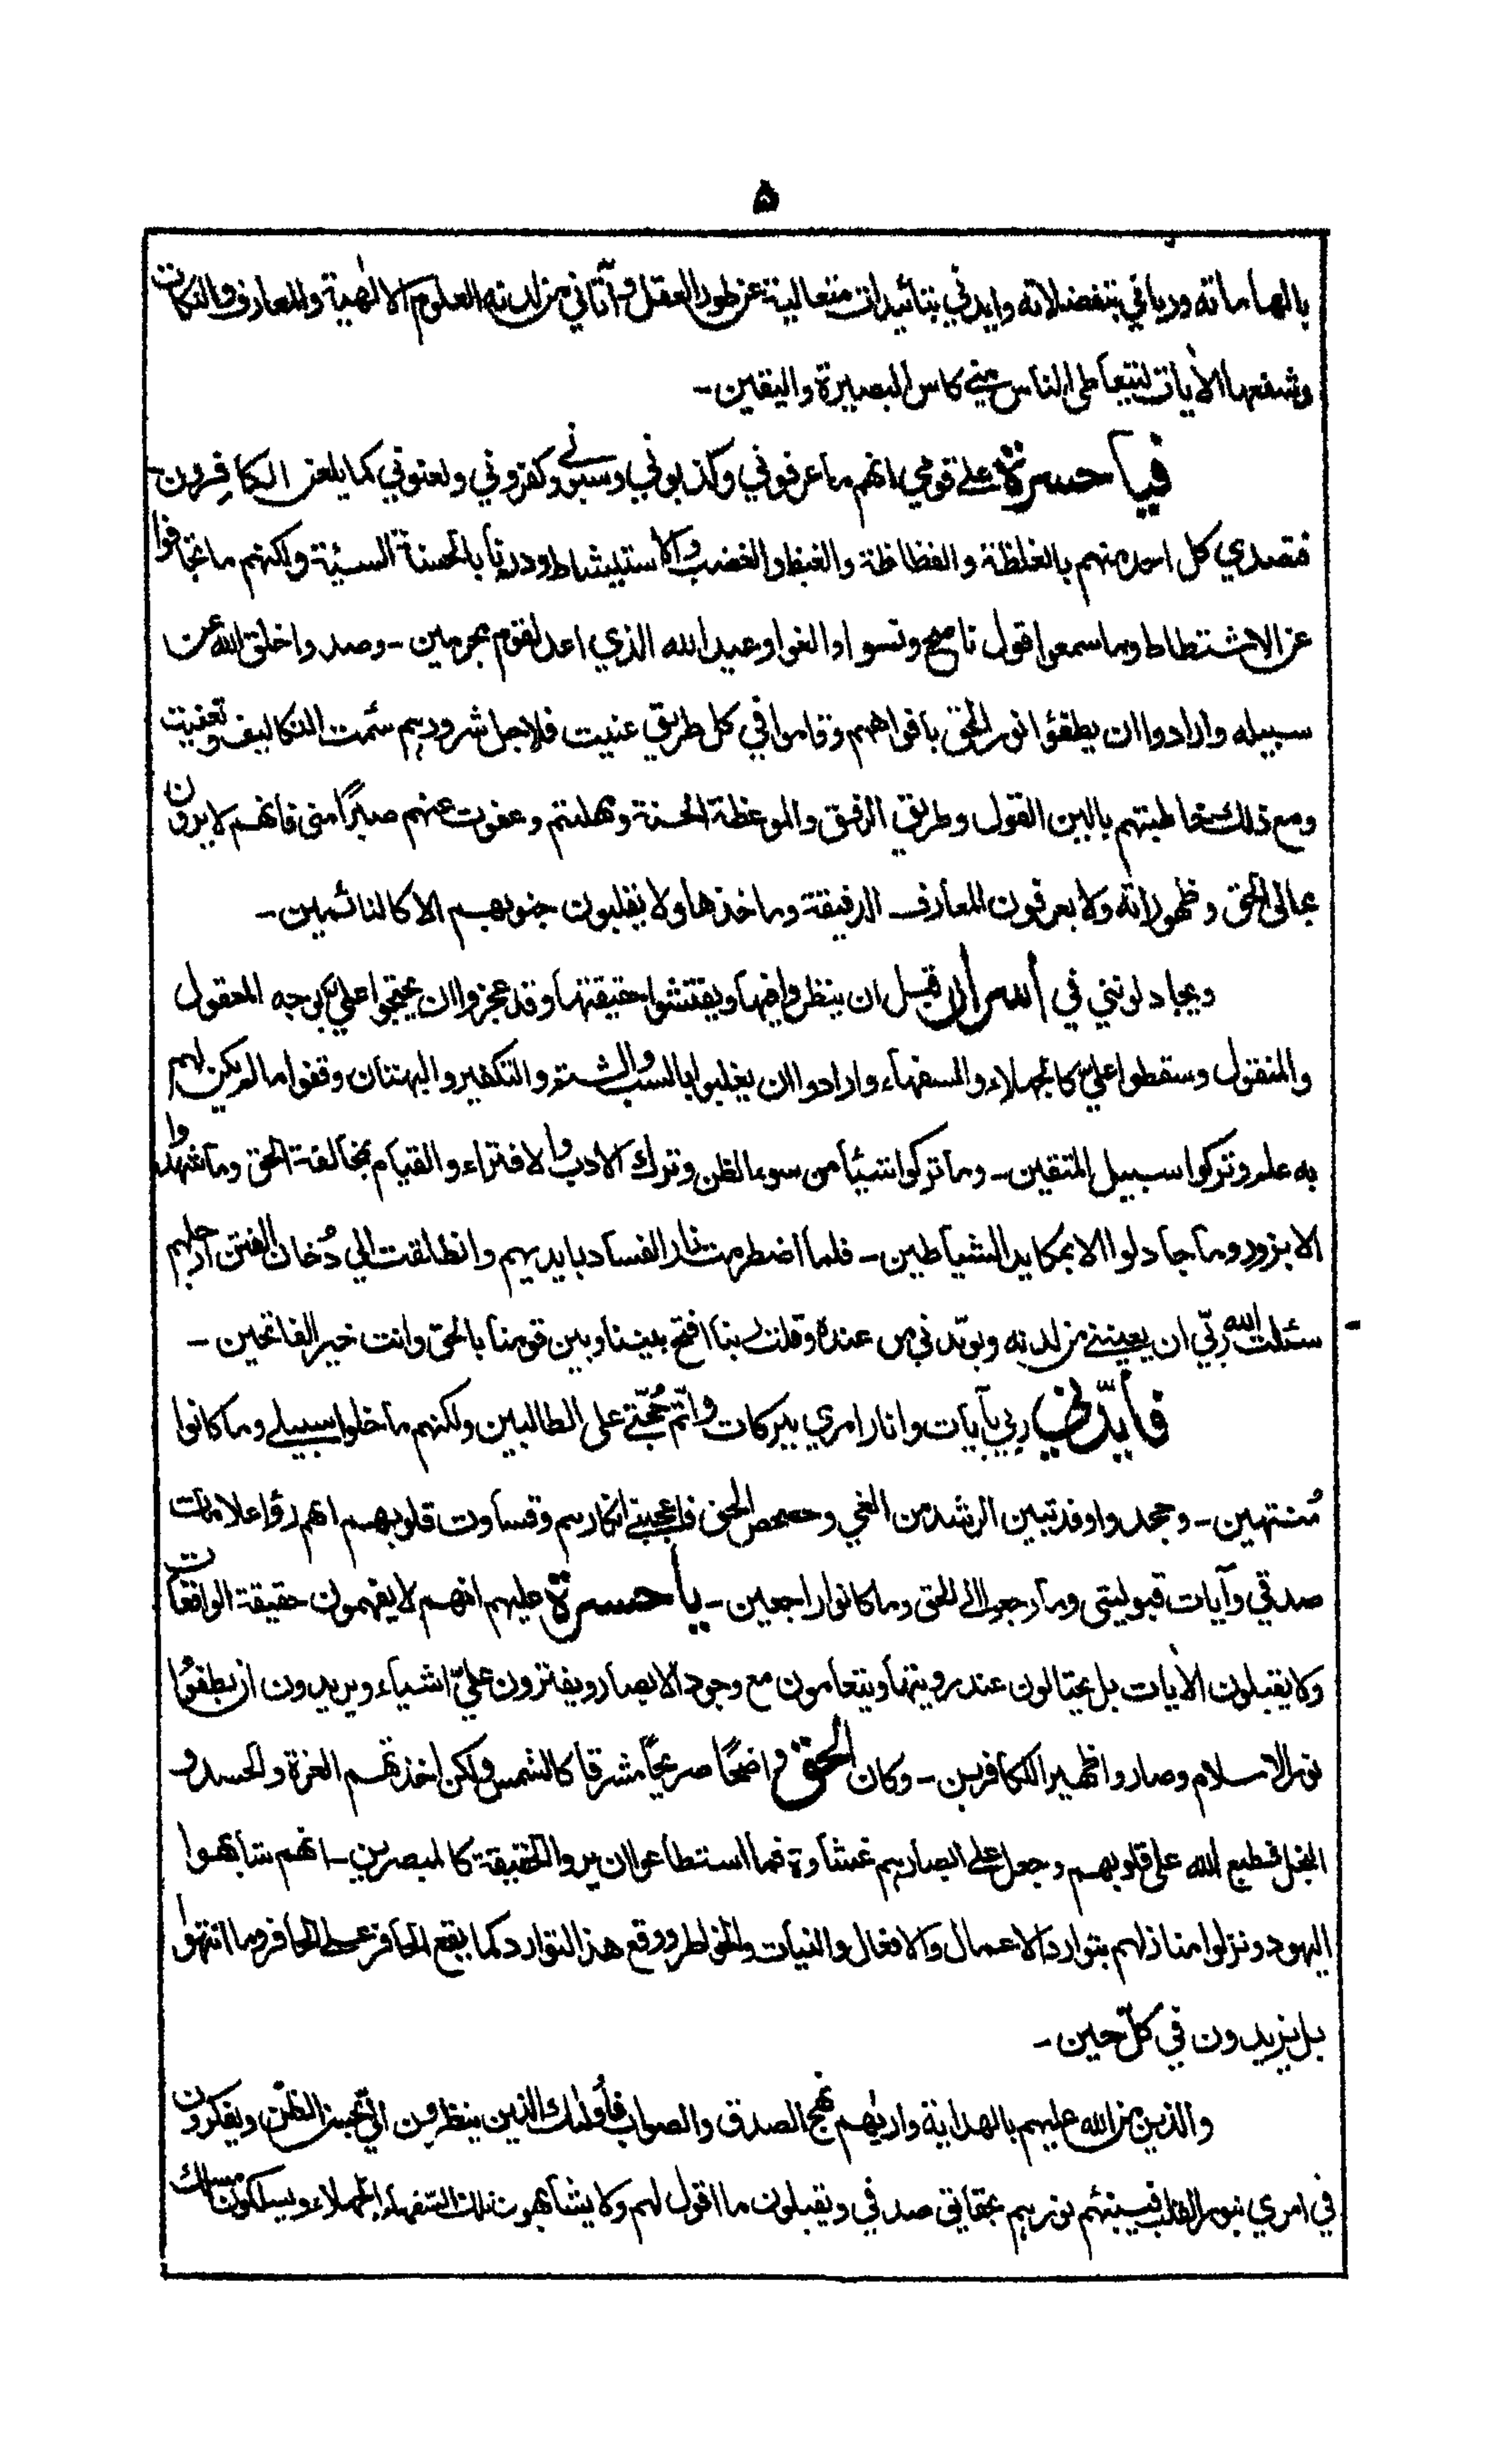 ۵
بالهاماته ورباني بتفضلاته وايدني بتائيدات متعالية عن طور العقل وآتاني من لدنه العلوم الالٰهية والمعارف والنكات
وشفعها الآيات ليتعاطى الناس مني كاس البصيرة واليقين-
فيا حسرة على قومي انهم ما عرفوني وكذبوني وسبّوني وكفروني ولعنوني كما يلعن الكافرون
فتصدي كل احد منهم بالغلظة والفظاظة والغيظ والغضب والاستيشاط ودرءنا بالحسنة السيئة ولكنهم ما تجافوا
عن الاشتطاط وما سمعوا قول ناصح ونسوا والغوا وعيد الله الذي اعد لقوم مجرمين- وصدوا خلق الله عن
سبيله وارادوا ان يطفؤا نور الحق بافواههم وقاموا في كل طريق عنيت فلاجل شرورهم سئمت التكاليف وتعنيت
ومع ذلك خاطبتهم بالين القول وطريق الرفق والموعظة الحسنة وامهلتهم وعفوت عنهم صبرًا مني فانهم لا يرون
مجالي الحق وظهوراته ولا يعرفون المعارف الدقيقة وماخذها ولا يقلبون جنوبهم الا كالنائمين-
ويجادلونني في أسرار قبل ان ينظروا فيها ويفتشوا حقيقتها وقد عجزوا ان يحتجوا علي بوجه المعقول
والمنقول وسقطوا عليّ كالجهلاء والسفهاء وارادوا ان يغلبوا بالسب والشتم والتكفير والبهتان وقفوا ما لم يكن لهم
به علم وتركوا سبيل المتقين- وما تركوا شيئًا من سوء الظن وترك الادب والافتراء والقيام بمخالفة الحق وما شهدوا
الا بزور وما جادلوا الا بمكايد الشياطين- فلما اضطرمت نار الفساد بايديهم وانطلقت الي دُخان الفتن ارجلهم
سئلت الله ربّي ان يعينني من لدنه ويؤيّدني من عنده وقلت ربنا افتح بيننا وبين قومنا بالحق وانت خير الفاتحين-
فأيّدني ربي بآيات وانار امري ببركات واتم حُجّتي على الطالبين ولكنهم ما خلوا سبيلي وما كانوا
مُنتهين- وجحدوا وقد تبين الرشد من الغي وحصحص الحق فاعجبني انكارهم وقساوت قلوبهم انهم رؤا علامات
صدقي وآيات قبوليتي وما رجعوا الى الحق وما كانوا راجعين- يا حسرة عليهم انهم لا يفهمون حقيقة الواقعات
ولا يقبلون الآيات بل يحتالون عند رويتها ويتعامون مع وجود الابصار ويفترون عليّ اشياء ويريدون ان يطفئوا
نور الاسلام وصاروا ظهير الكافرين- وكان الحق واضحًا صريحًا مشرقا كالشمس ولكن اخذتهم العزة والحسد و
البخل فطبع الله على قلوبهم وجعل على ابصارهم غشاوة فما استطاعوا ان يروا الحقيقة كالمبصرين- انهم شابهوا
اليهود ونزلوا منازلهم بتوارد الاعمال والافعال والنيات والخواطر ووقع هذا التوارد كما يقع الحافر على الحافر وما انتهوا
بل يزيدون في كلّ حين-
والذين من الله عليهم بالهداية واراهم نهج الصدق والصواب فأولئك الذين ينظرون اليّ بحسن الظنّ ويفكرون
في امري بنور القلب فينبئهم نورهم بحقايق صدقي ويقبلون ما اقول لهم ولا يشابهون تلك السفهاء الجهلاء ويسلكون مسلك